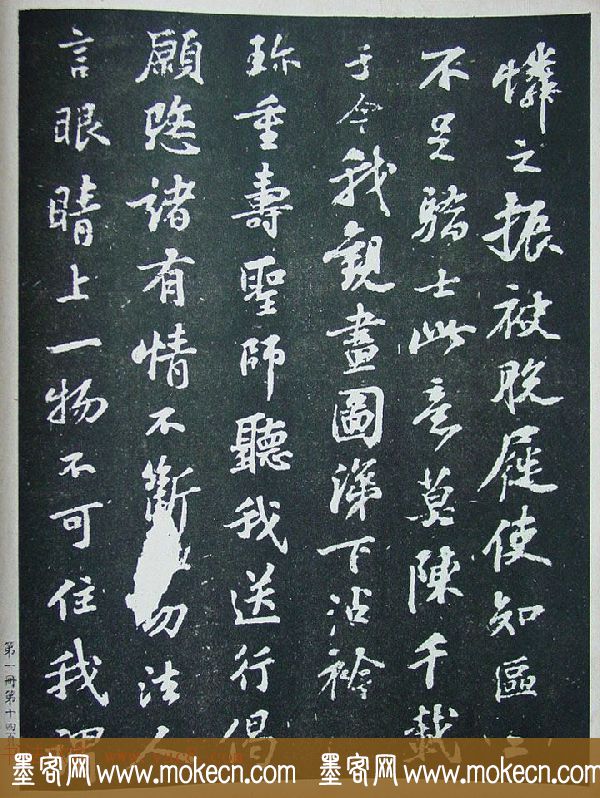 憐之振被脫屣使知區
不足驕士此意莫陳千載
于今我觀畫圖涕下沾衿
珎重壽聖師聽我送行偈
願愍諸有情不斷切法人
言眼睛上一物不可住我謂
第一冊第十四
墨客网www.mokecn.com 墨客网www.mokecn.com